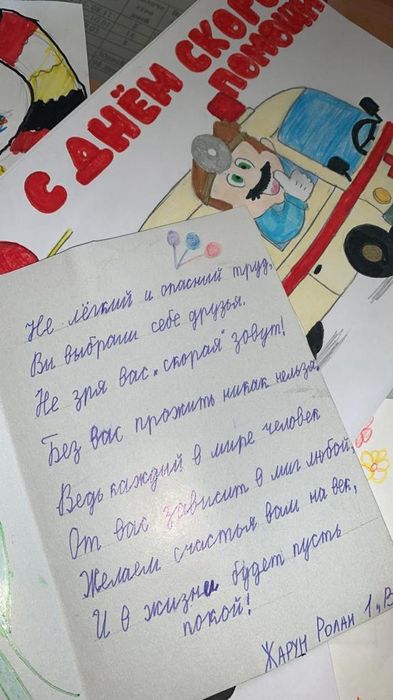 С ДНЁМ СКОРО
ПОМОЩИ
Не лёгкий и опасный труд,
Ви выбраш себе друзья.
Не зря вас „скорая" зовут!
Без вас прожить никак нельзя.
Ведь каждый в мире человек
От вас зависит в миг любой.
Желаем счастья вам на век,
И в жизни будет пусть
покой!
Жарун Ролан 1„В